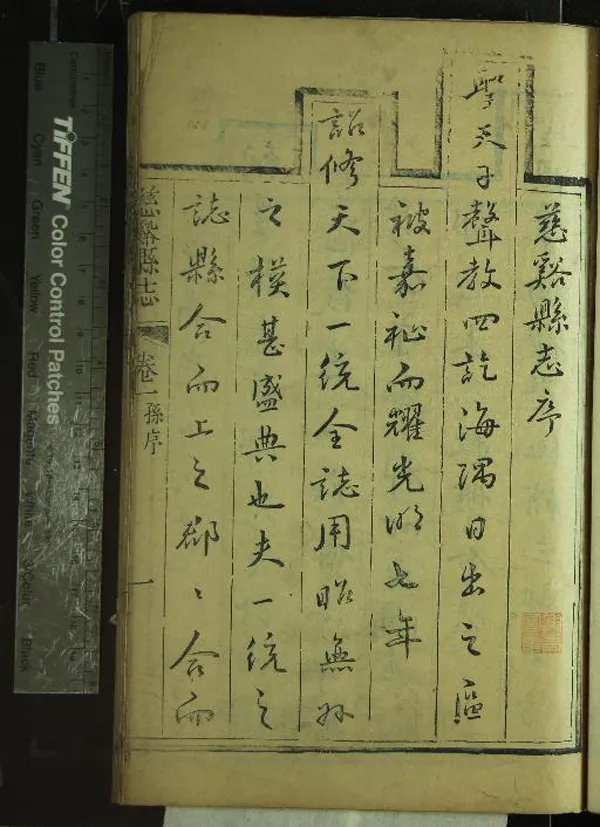 慈谿縣志序
聖天子聲教四訖海隅日出之區
被嘉祉而耀光明七年
詔修天下一統全誌用昭無外
之模甚盛典也夫一統之
誌縣合而上之郡〻合而
慈谿縣志 卷一 孫序 一
TIFFEN Color Control Patches
Centimetres
Blue Cyan Green Yellow Red Magenta White 3/Color Black